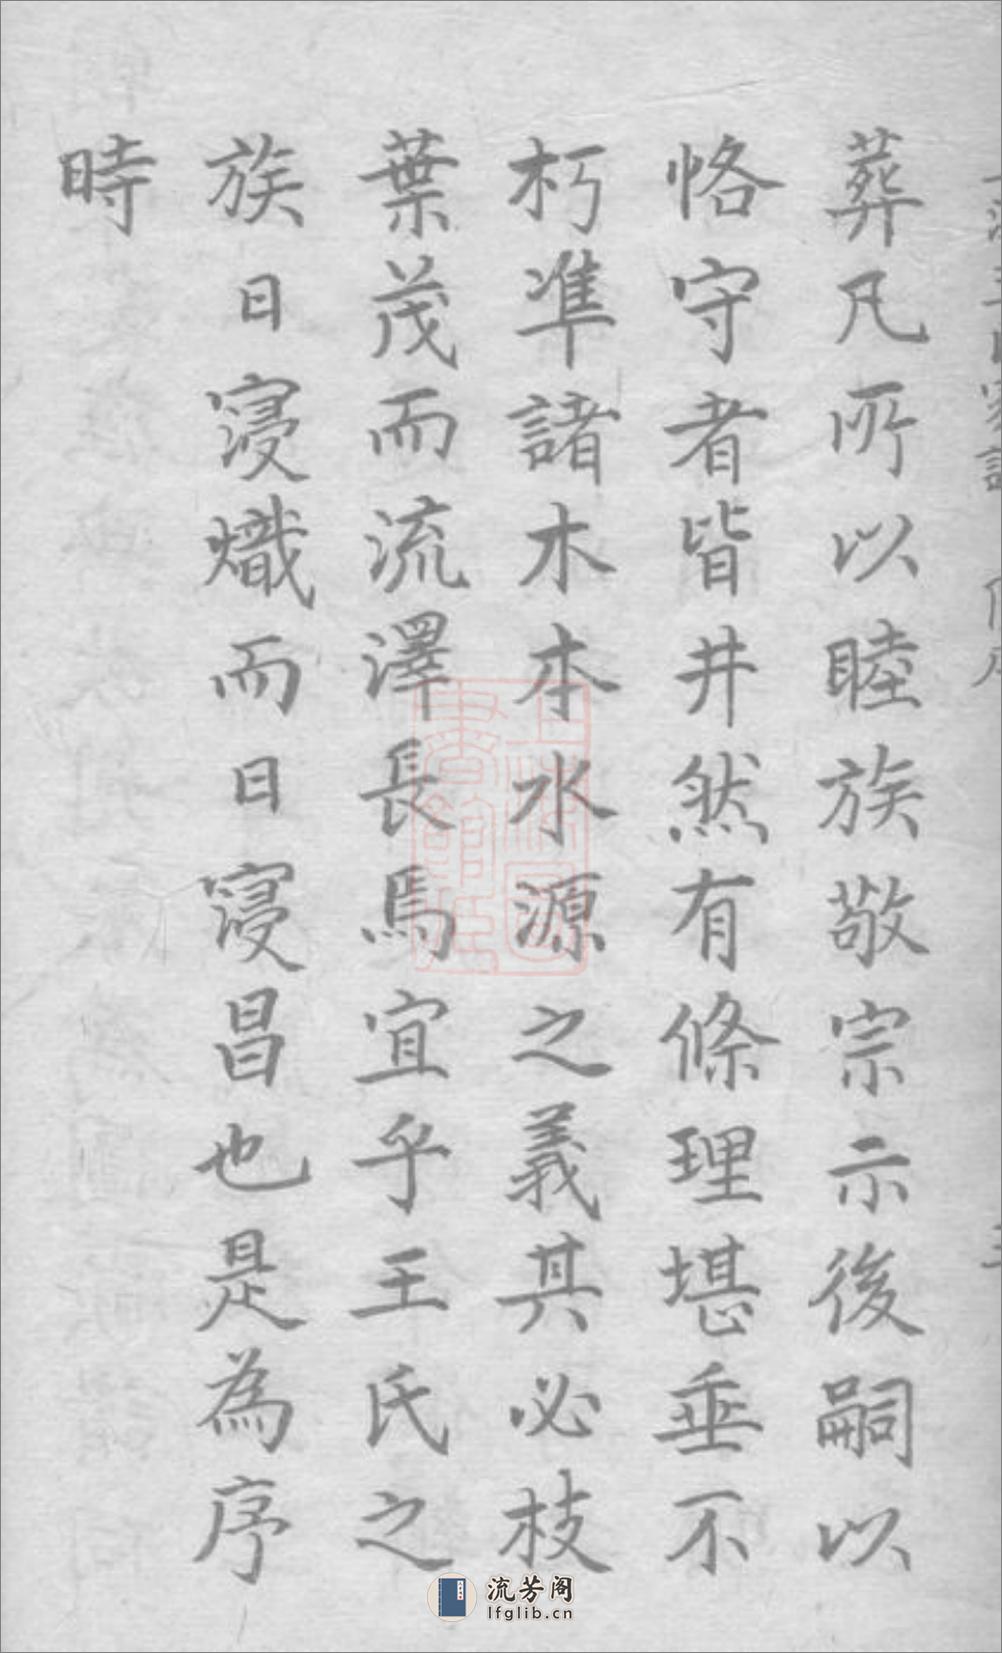 葬凡所以睦族敬宗示後嗣以
恪守者皆井然有條理堪垂不
朽準諸木本水源之義其必枝
葉茂而流澤長焉宜乎王氏之
族日寖熾而日寖昌也是為序
時
流芳阁
lfglib.cn